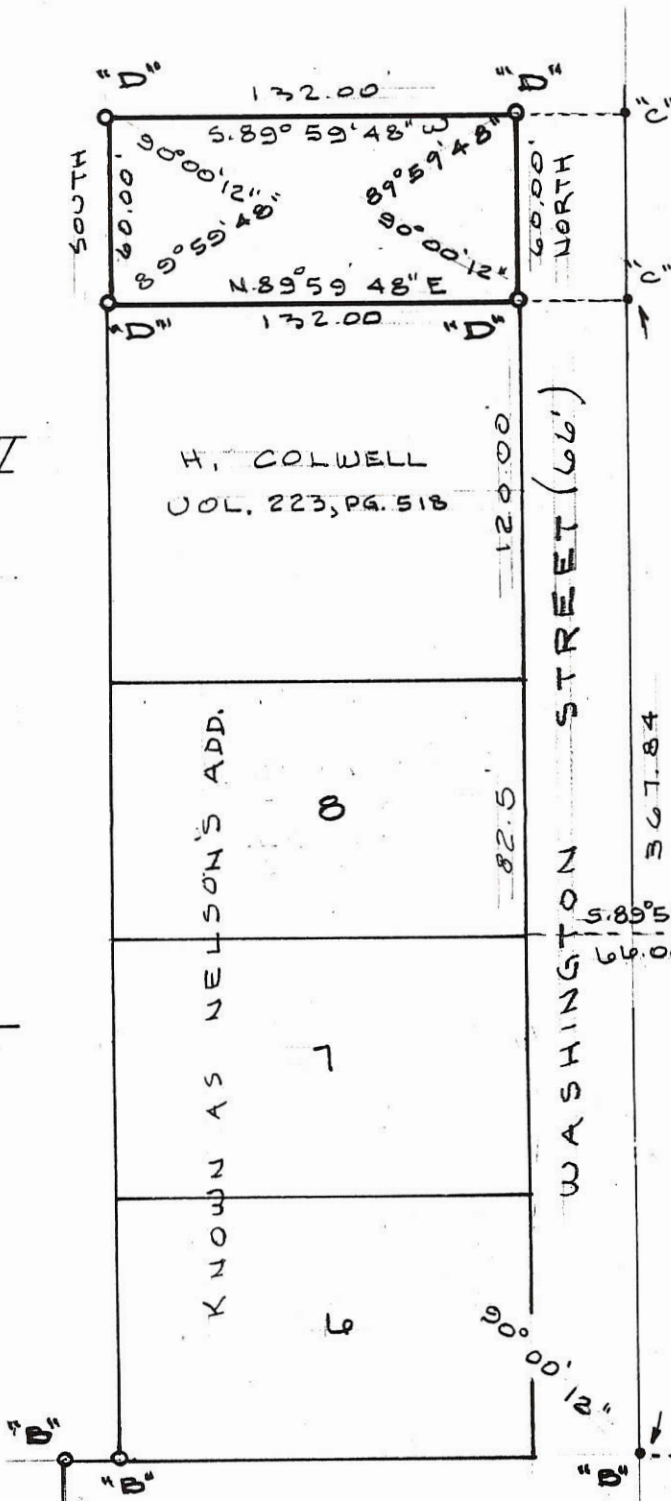 "D"
132.00'
"D"
"C"
S.89° 59' 48" W
90°00'12"
89°59'48"
SOUTH
60.00'
60.00'
NORTH
89°59'48"
90°00'12"
N.89°59' 48" E
"C"
"D"
132.00
"D"
H. COLWELL
VOL. 223, PG. 518
120.00'
WASHINGTON STREET (66')
KNOWN AS NELSON'S ADD.
8
82.5'
367.84
S.89°5
66.0
7
6
90° 00' 12"
"B"
"B"
"B"